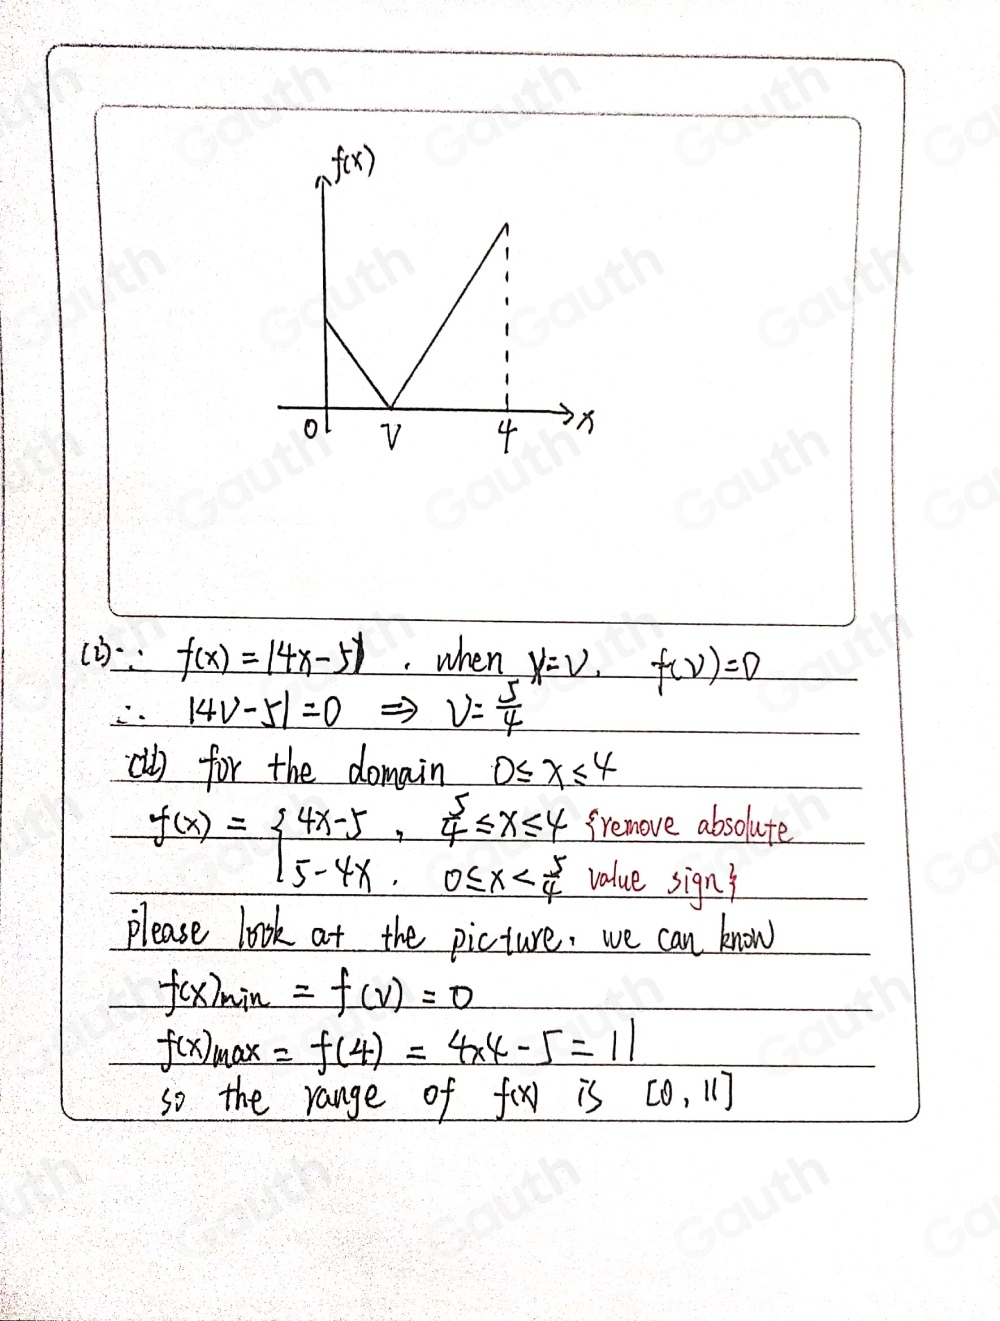 f(x)
0 V 4 x
(i) ∵ f(x) = |4x-5| . when x=v, f(v)=0
∴ |4v-5|=0 ⇒ v= 5/4
(ii) for the domain 0≤x≤4
f(x) = { 4x-5 , 5/4 ≤x≤4 {remove absolute
5-4x . 0≤x< 5/4 value sign}
please look at the picture. we can know
f(x)min = f(v) = 0
f(x)max = f(4) = 4x4-5 = 11
so the range of f(x) is [0, 11]
Gauth